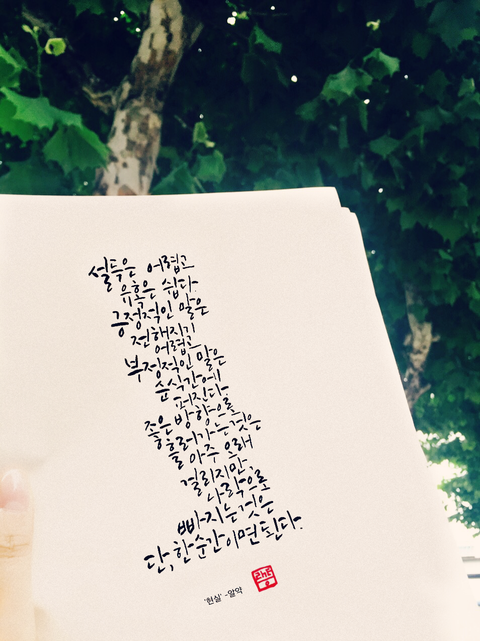 설득은 어렵고
유혹은 쉽다
긍정적인 말은
전해지기
어렵고
부정적인 말은
순식간에
퍼진다.
좋은 방향으로
흘러가는것은
아주 오래
걸리지만,
나락으로
빠지는것은
단, 한순간이면 된다.
'현실' -알약